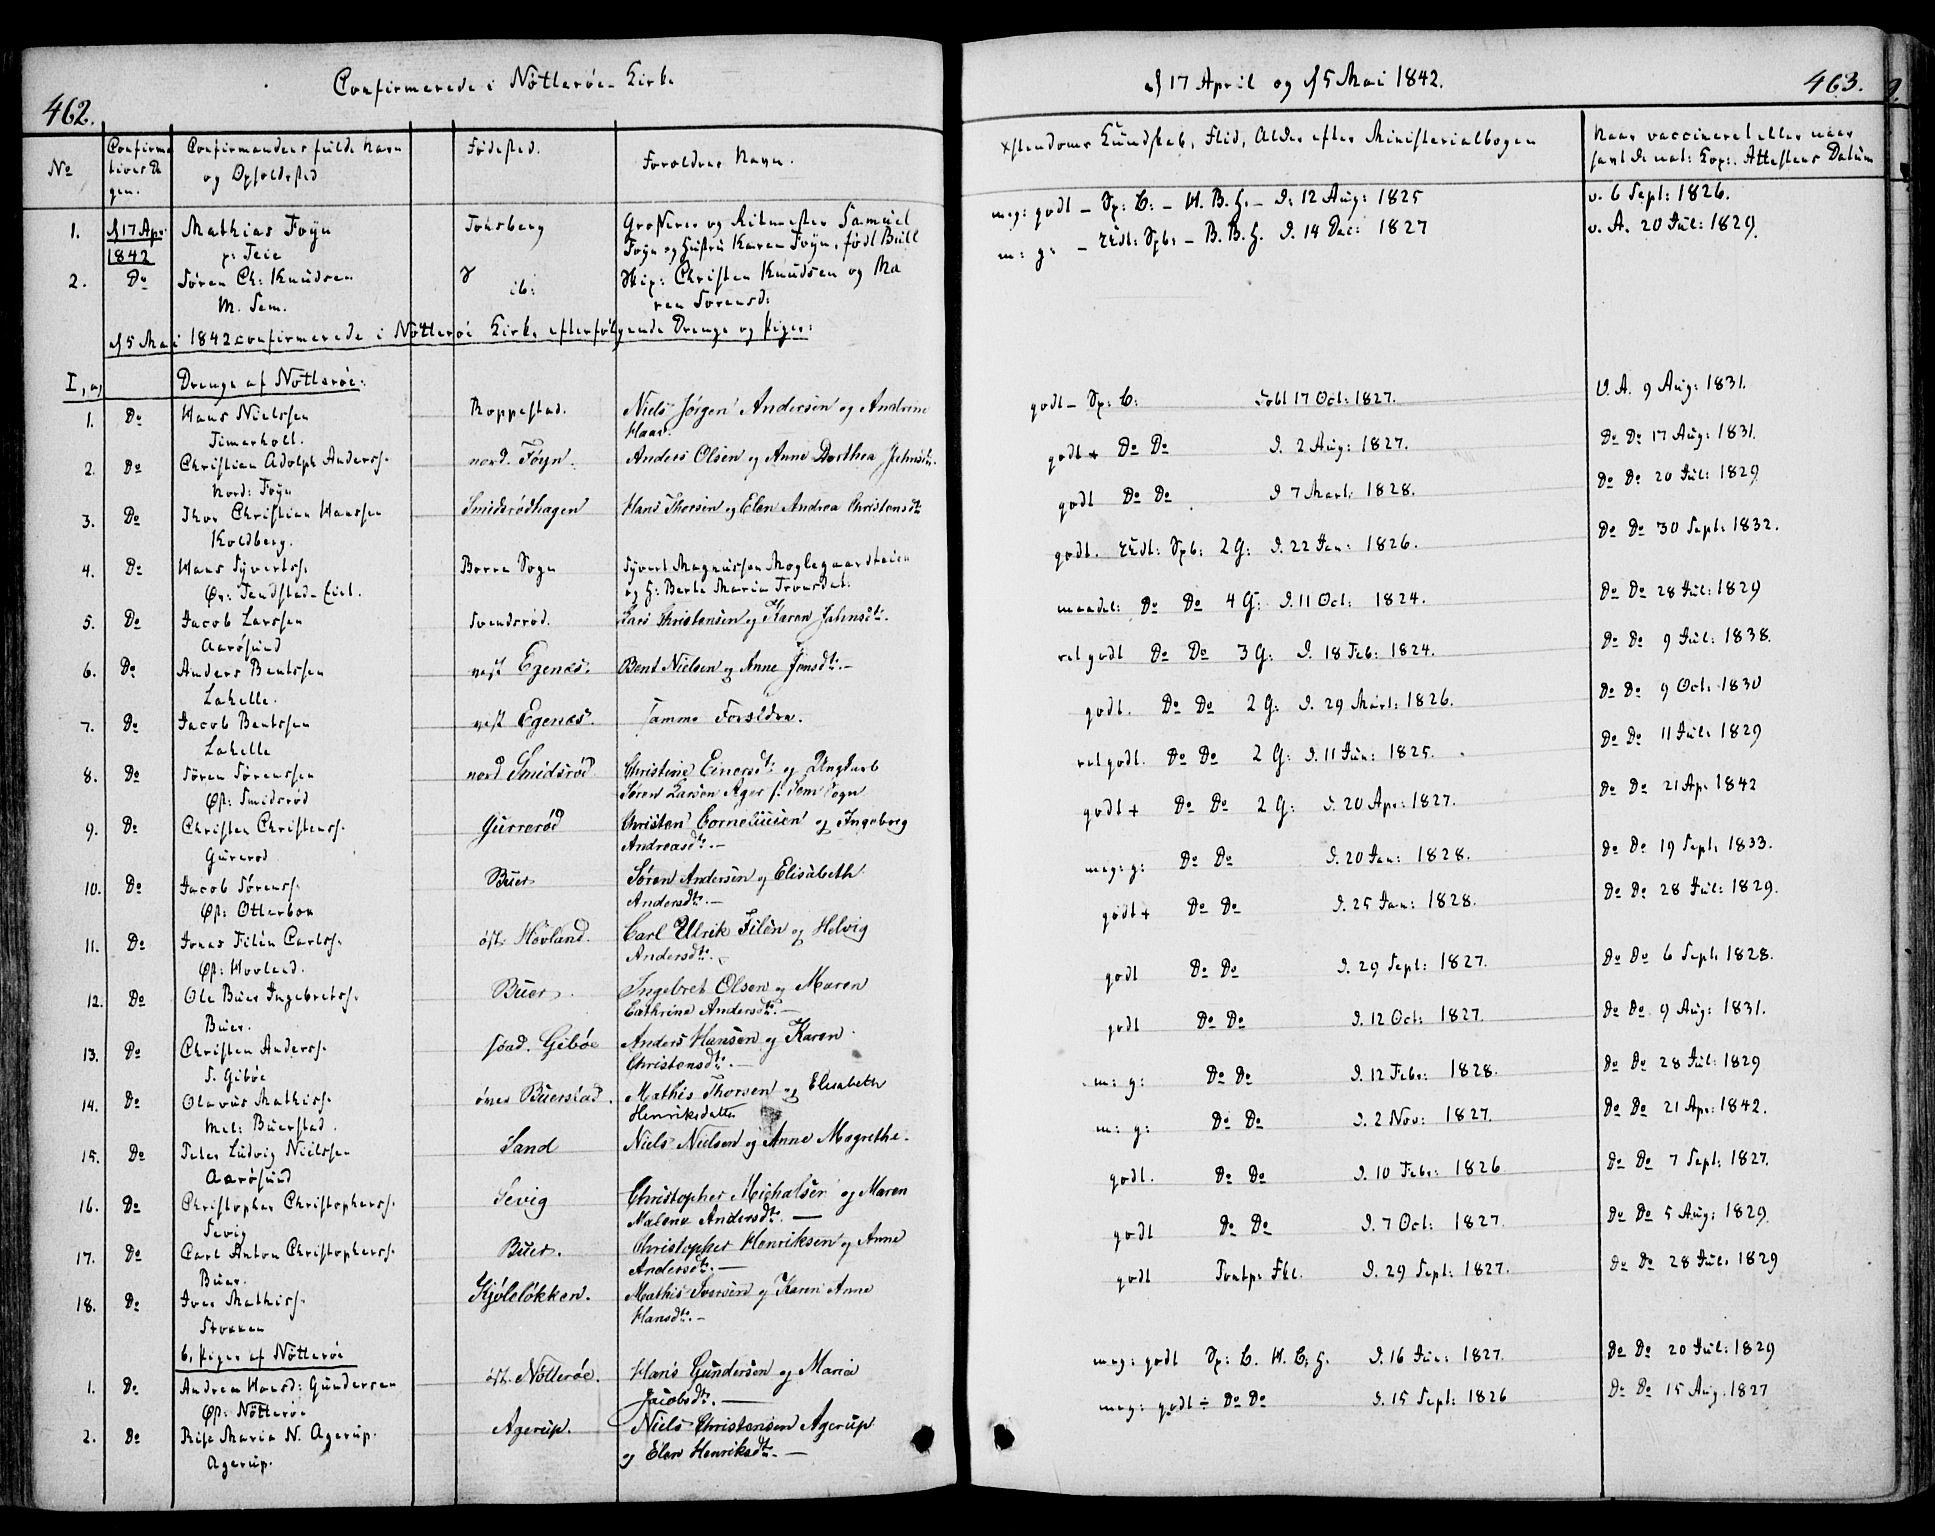 462.
Confirmerede i Nötterøe Kirke
No
Confirmationens Dagen.
Confirmandens fulde Navn og Opholdssted
Fødested.
Foreldres Navn.
1. d 17 Apr: 1842 Mathias Foyn Tønsberg Grosserer og Ritmester Samuel
p: Teie Foyn og Hustru Karen Foyn, født Bull
2. Do Søren Ch: Knudsen ib: Skip: Christen Knudsen og Ma
M. Sem. ren Sorensd:
d 5 Mai 1842 confirmerede i Nötterøe Kirke efterfølgende Drenge og Piger:
I, a, Drenge af Nötterøe:
1. Do Hans Nielssen Roppestad. Niels Jörgen Andersen og Andrine
Timerholt. Haar.
2. Do Christian Adolph Anderss. nord. Föyn. Anders Olsen og Anne Dorthea Jahnsdt.
Nord: Föyn
3. Do Thor Christian Hanssen Smidsrødhagen Hans Thorsen og Elen Andrea Christensdt:
Koldberg.
4. Do Hans Syvertss. Borre Sogn Syvert Magnussen Moglegaardteien
Ør: Tandstad-Eiet. og H: Berte Maria Trousdat:
5. Do Jacob Larssen Svendsrød. Lars Christensen og Karen Jahnsdt:
Aarøsund
6. Do Anders Bentssen vest Egenæs: Bent Nielsen og Anne Jonsdt: –
Lahelle.
7. Do Jacob Bentssen vest Egenæs. Samme Foreldre.
Lahelle
8. Do Sören Sörenssen nord Smidsrød Christine Einersdt: og Ungkarl
Øst: Smidsrød Søren Larsen Ager f: Sem Sogn
9. Do Christen Christenss. Gurrerød Christen Corneliusen og Ingeborg
Gurerod Andreasdt: –
10. Do Jacob Sörenss. Buer Søren Andersen og Elisabeth
Øst: Otterbon Andersdt: –
11. Do Jonas Filén Carlss. öst: Hovland. Carl Ulrik Filén og Helvig
Øst: Hovland. Andersdt:
12. Do Ole Buer Ingebretss. Buer. Ingebret Olsen og Maren
Buer. Cathrine Andersdt: –
13. Do Christen Anderss. söad. Gibøe Anders Hansen og Karen
S. Gibøe Christensdt: –
14. Do Olavus Mathiss. övre Buerstad. Mathis Thorsen og Elisabeth
Mel: Buerstad. Henriksdatter
15. Do Peter Ludvig Nielssen Sand Niels Nielsen og Anne Magrethe.
Aarøsund
16. Do Christopher Christopherss. Sevig Christopher Michalsen og Maren
Sevig Malene Andersdt: –
17. Do Carl Anton Christopherss. Buer. Christopher Henriksen og Anne
Buer. Andersdt: –
18. Do Iver Mathiss. Kjöleløkken. Mathis Iversen og Karen Anne
Stokken Hansdt: –
b, Piger af Nötterøe
1. Do Andrea Hansd: Gundersen öst. Nötterøe. Hans Gundersen og Maria
Øst: Nötterøe Jacobsdt: –
2. Do Rise Maria N. Agerup. Agerup. Niels Christensen Agerup
Agerup. og Elen Henriksdt: –
d 17 April og d 5 Mai 1842.
463.
Xstendoms Kundskab, Flid, Alder efter Ministerialbogen
Naar vaccineret eller naar
havt de nat: Kop: Attestens Datum
meg: godt – Sp: C: – H. B. H. – D: 12 Aug: 1825 v. 6 Sept: 1826.
m: g: – Udt: Spb: – B. B. H. D. 14 Dec: 1827 v. A. 20 Jul: 1829.
godt – Sp: C: Født 17 Oct: 1827. V. A. 9 Aug: 1831.
godt + Do Do D. 2 Aug: 1827. Do Do 17 Aug: 1831.
godt Do Do D. 7 Mart: 1828. Do Do 20 Jul: 1829
godt. Udt: Spb: 2 G: D. 22 Jan: 1826. Do Do 30 Sept: 1832.
maadel: Do Do 4 G: D. 11 Oct: 1824. Do Do 28 Jul: 1829
vel godt Do Do 3 G: D. 18 Feb: 1824. Do Do 9 Jul: 1838.
godt. Do Do 2 G: D. 29 Mart: 1826. Do Do 9 Oct: 1830
vel godt. Do Do 2 G: D. 11 Jun: 1825. Do Do 11 Jul: 1829
godt + Do Do 2 G: D. 20 Apr: 1827. Do Do 21 Ap: 1842
meg: g: Do Do D. 20 Jan: 1828. Do Do 19 Sept: 1833.
godt + Do Do D. 25 Jan: 1828. Do Do 28 Jul: 1829.
godt Do Do D. 29 Sept: 1827. Do Do 6 Sept: 1828.
godt Do Do D. 12 Oct: 1827. Do Do 9 Aug: 1831.
m: g: Do Do D. 12 Febr: 1828. Do Do 28 Jul: 1829
m: g: Do Do D. 2 Nov: 1827. Do Do 21 Apr: 1842.
godt. Do Do D. 10 Febr: 1826 Do Do 7 Sept: 1827.
godt Do Do D. 7 Oct: 1827. Do Do 5 Aug: 1829.
godt D. 29 Sept: 1827. Do Do 28 Jul: 1829
meg: godt Sp: C. H. C. H. D. 16 Jun: 1827. Do Do 20 Jul: 1829
meg: godt ÷ Do Do D. 15 Sept: 1826 Do Do 15 Aug. 1827